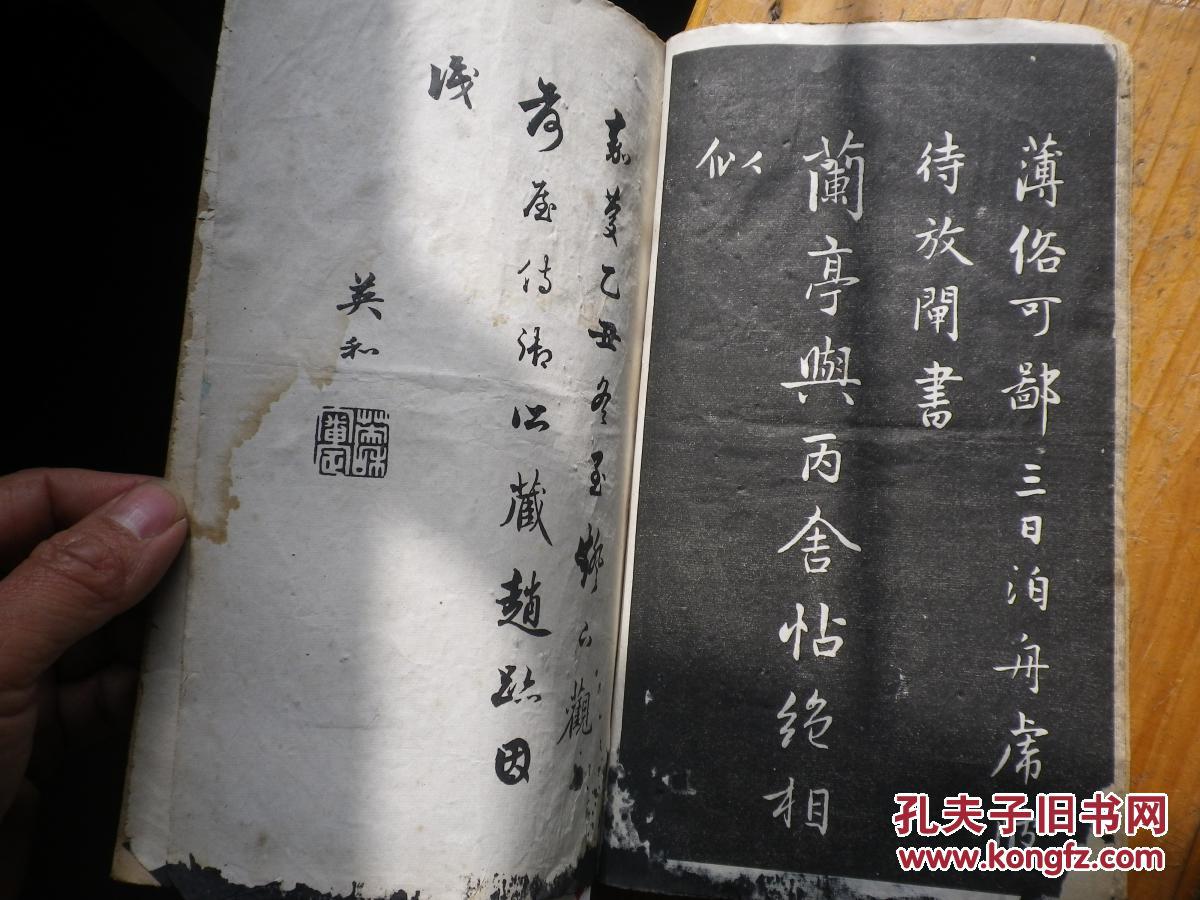 薄俗可鄙三日泊舟虎
待放閘書
蘭亭與丙舍帖絕相
似
嘉慶乙丑冬至後六觀
荷屋侍御所藏趙跡因
識
英和
孔夫子旧书网
www.kongfz.com